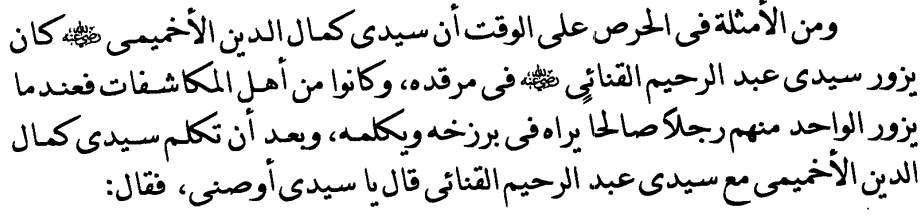 ومن الأمثلة فى الحرص على الوقت أن سيدى كمال الدين الأخميمى رضي الله عنه كان
يزور سيدى عبد الرحيم القنائى رضي الله عنه فى مرقده، وكانوا من أهل المكاشفات فعندما
يزور الواحد منهم رجلاً صالحا يراه فى برزخه ويكلمه، وبعد أن تكلم سيدى كمال
الدين الأخميمى مع سيدى عبد الرحيم القنائى قال يا سيدى أوصنى، فقال: